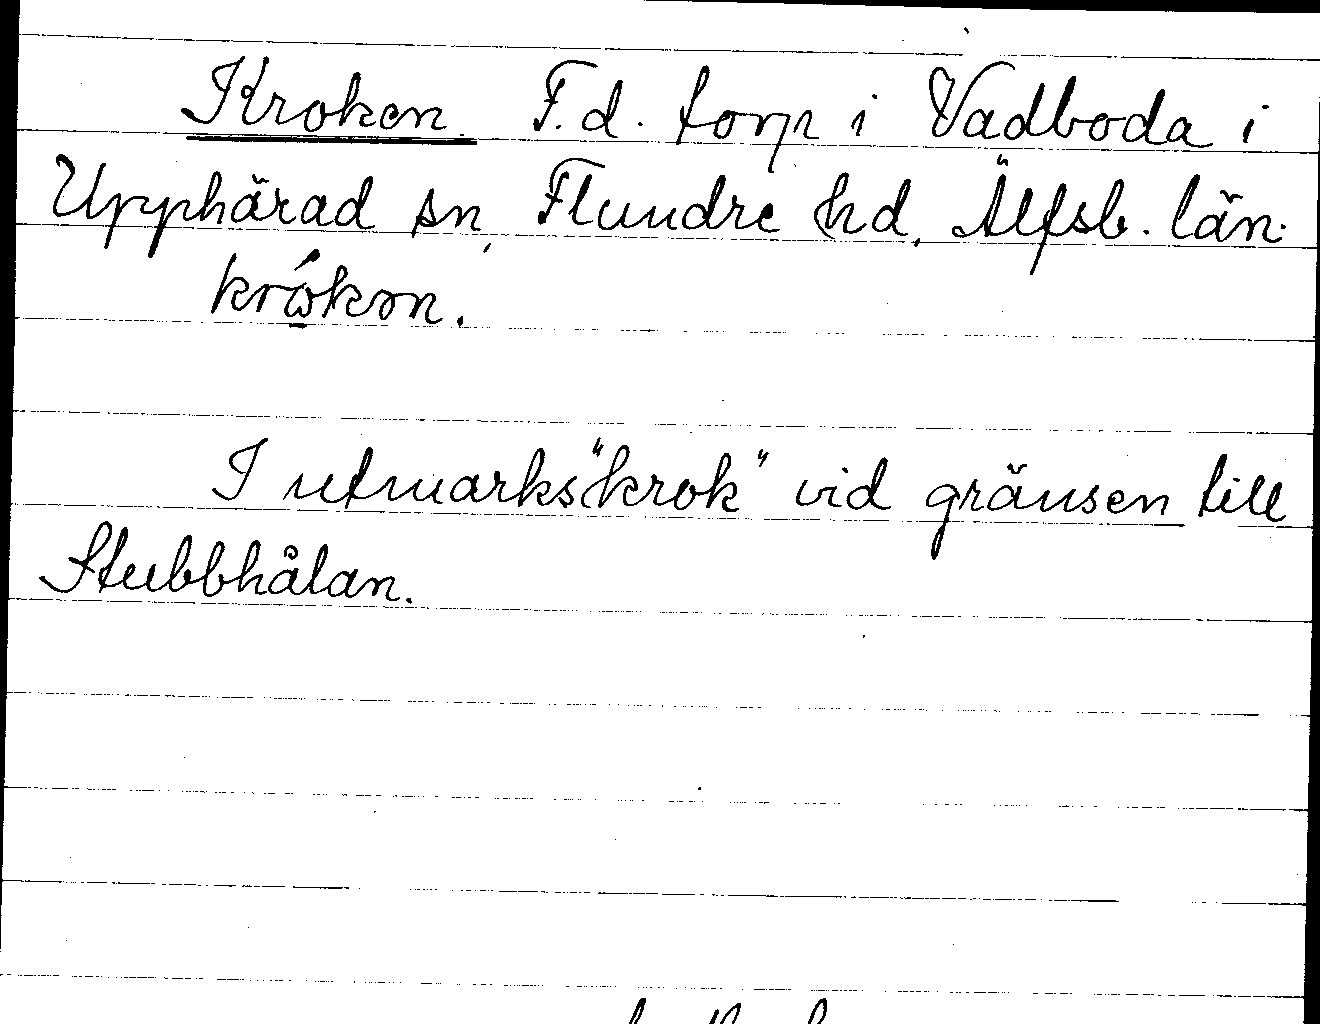 Kroken F.d. torp i Vadboda i
Upphärad sn, Flundre hd, Älfsb. län.
krókon.
I utmarks"krok" vid gränsen till
Stubbhålan.